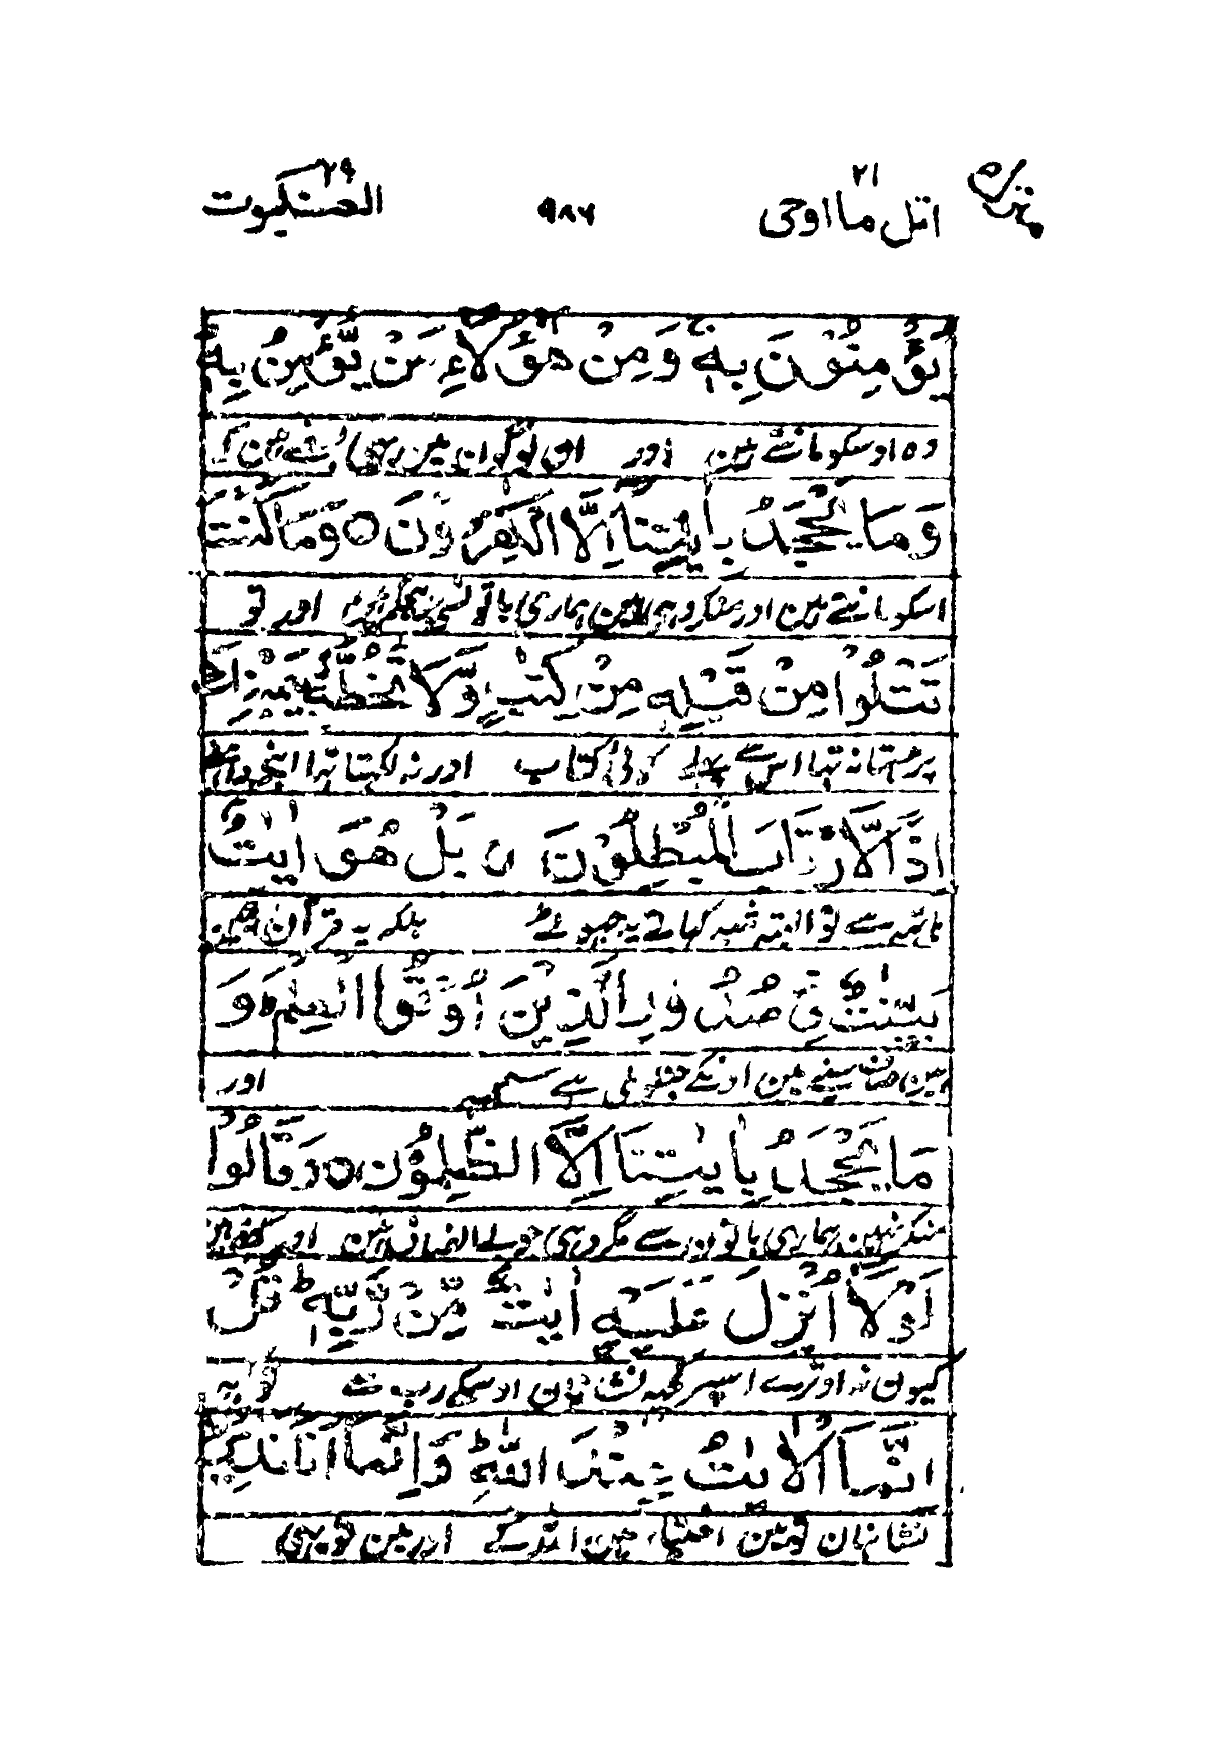 اتل ما اوحی ٢١ ٩٨٦ العنکبوت ٢٩
يُؤْمِنُوْنَ بِهٖ ۚ وَمِنْ هٰۤؤُلَآءِ مَنْ يُّؤْمِنُ بِهٖ
وہ اوسکو مانتے ہین اور ان لوگون مین بہی ہین کہ
وَمَا يَجْحَدُ بِاٰيٰتِنَاۤ اِلَّا الْكٰفِرُوْنَ ○ وَمَا كُنْتَ
اسکو مانتے ہین اور منکر وہی ہین ہماری باتونسے اور تو
تَتْلُوْا مِنْ قَبْلِهٖ مِنْ كِتٰبٍ وَّلَا تَخُطُّهٗ بِيَمِيْنِكَ
پڑھتا نہ تہا اس سے پہلے کوئی کتاب اور نہ لکہتا تہا اپنے داہنے
اِذًا لَّارْتَابَ الْمُبْطِلُوْنَ ○ بَلْ هُوَ اٰيٰتٌ
ہاتہہ سے تو البتہ شبہہ کہاتے یہ جہوٹے بلکہ یہ قرآن
بَيِّنٰتٌ فِيْ صُدُوْرِ الَّذِيْنَ اُوْتُوا الْعِلْمَ ؕ وَ
ہین صاف سینے مین اونکے جنکو ملی ہے سمجہہ اور
مَا يَجْحَدُ بِاٰيٰتِنَاۤ اِلَّا الظّٰلِمُوْنَ ○ وَقَالُوْا
منکر نہین ہماری باتون سے مگر وہی جو بے انصاف ہین اور کہتے ہین
لَوْلَاۤ اُنْزِلَ عَلَيْهِ اٰيٰتٌ مِّنْ رَّبِّهٖ ؕ قُلْ
کیون نہ اوترے اسپر کچہہ نشانیان اوسکے رب سے تو کہہ
اِنَّمَا الْاٰيٰتُ عِنْدَ اللّٰهِ ؕ وَاِنَّمَاۤ اَنَا نَذِيْرٌ
نشانیان تو ہین اختیار مین اللہ کے اور مین تو یہی